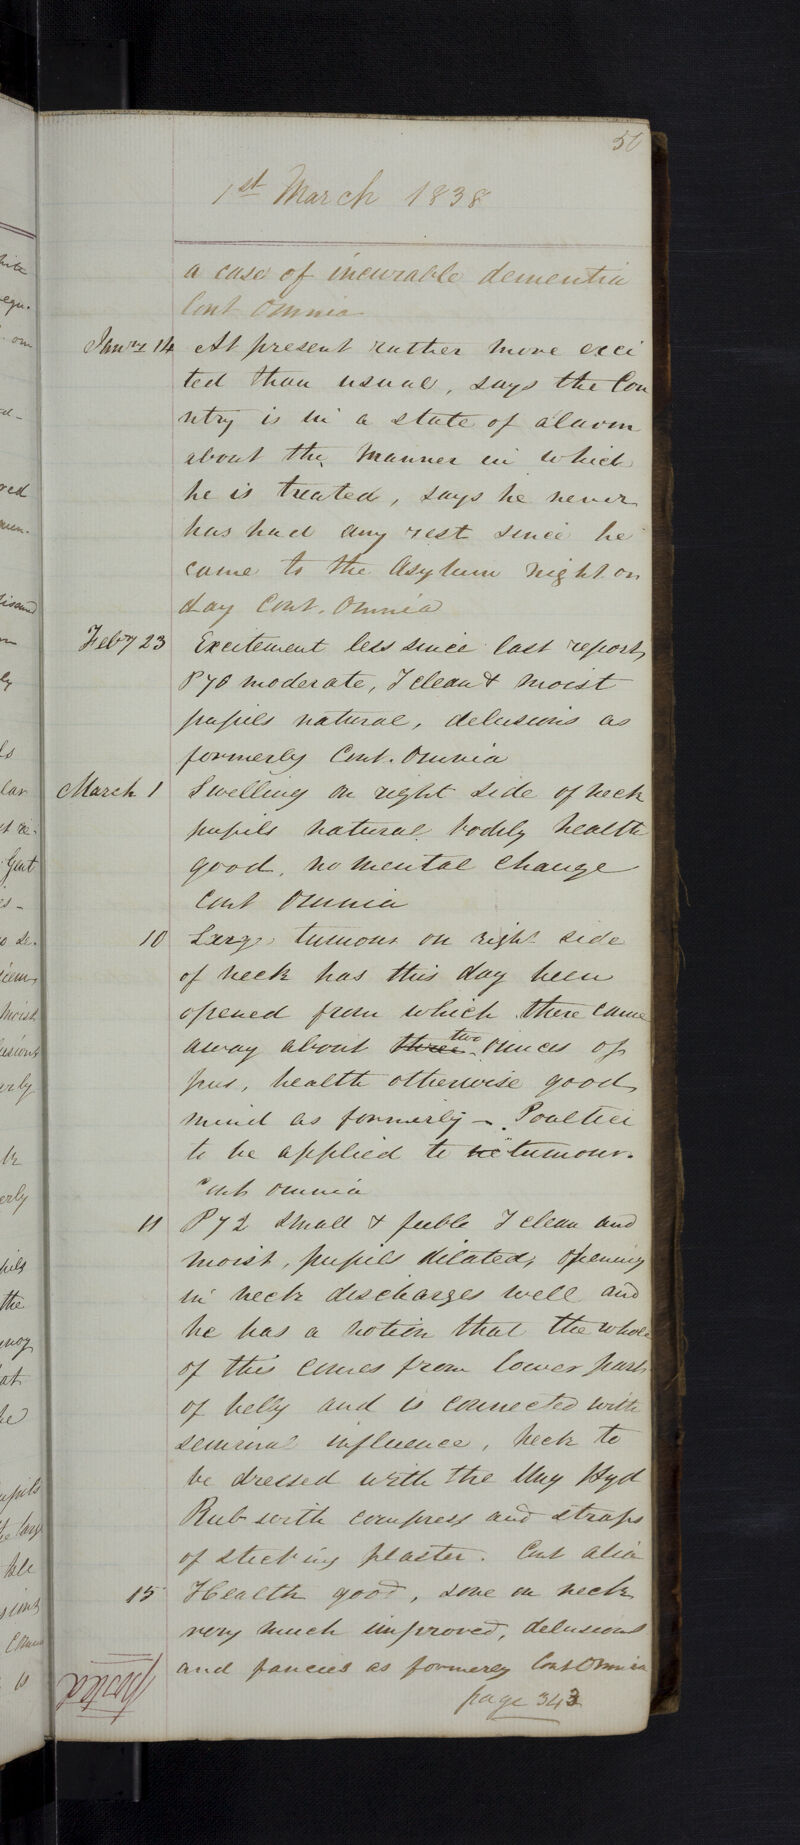 1st March 1838
a case of incurable dementia
Cont Omnia
Janry 14 At present rather more exci
ted than usual, says the Cou
ntry is in a state of alarm
about the manner in which
he is treated, says he never
has had any rest since he
came to the Asylum night or
day Cont. Omnia
Feby 23 Excitement less since last report,
P 76 moderate, T clean & moist
pupils natural, delusions as
formerly Cont. Omnia
March 1 Swelling on right side of neck
pupils natural bodily health
good, no mental change
Cont Omnia
10 Large tumour on right side
of neck has this day been
opened from which there came
away about three two ounces of
pus, health otherwise good,
mind as formerly - Poultice
to be applied to tumour.
Cont Omnia
11 P 72 small & feeble T clean and
moist, pupils dilated, opening
in neck discharges well and
he has a notion that the whole
of this comes from lower part
of belly and is connected with
seminal influence, neck to
be dressed with the Ung Hyd
Rub with compress and straps
of sticking plaster. Cont alia
15 Health good, sore on neck
very much improved, delusions
and fancies as formerly Cont Omnia
page 343